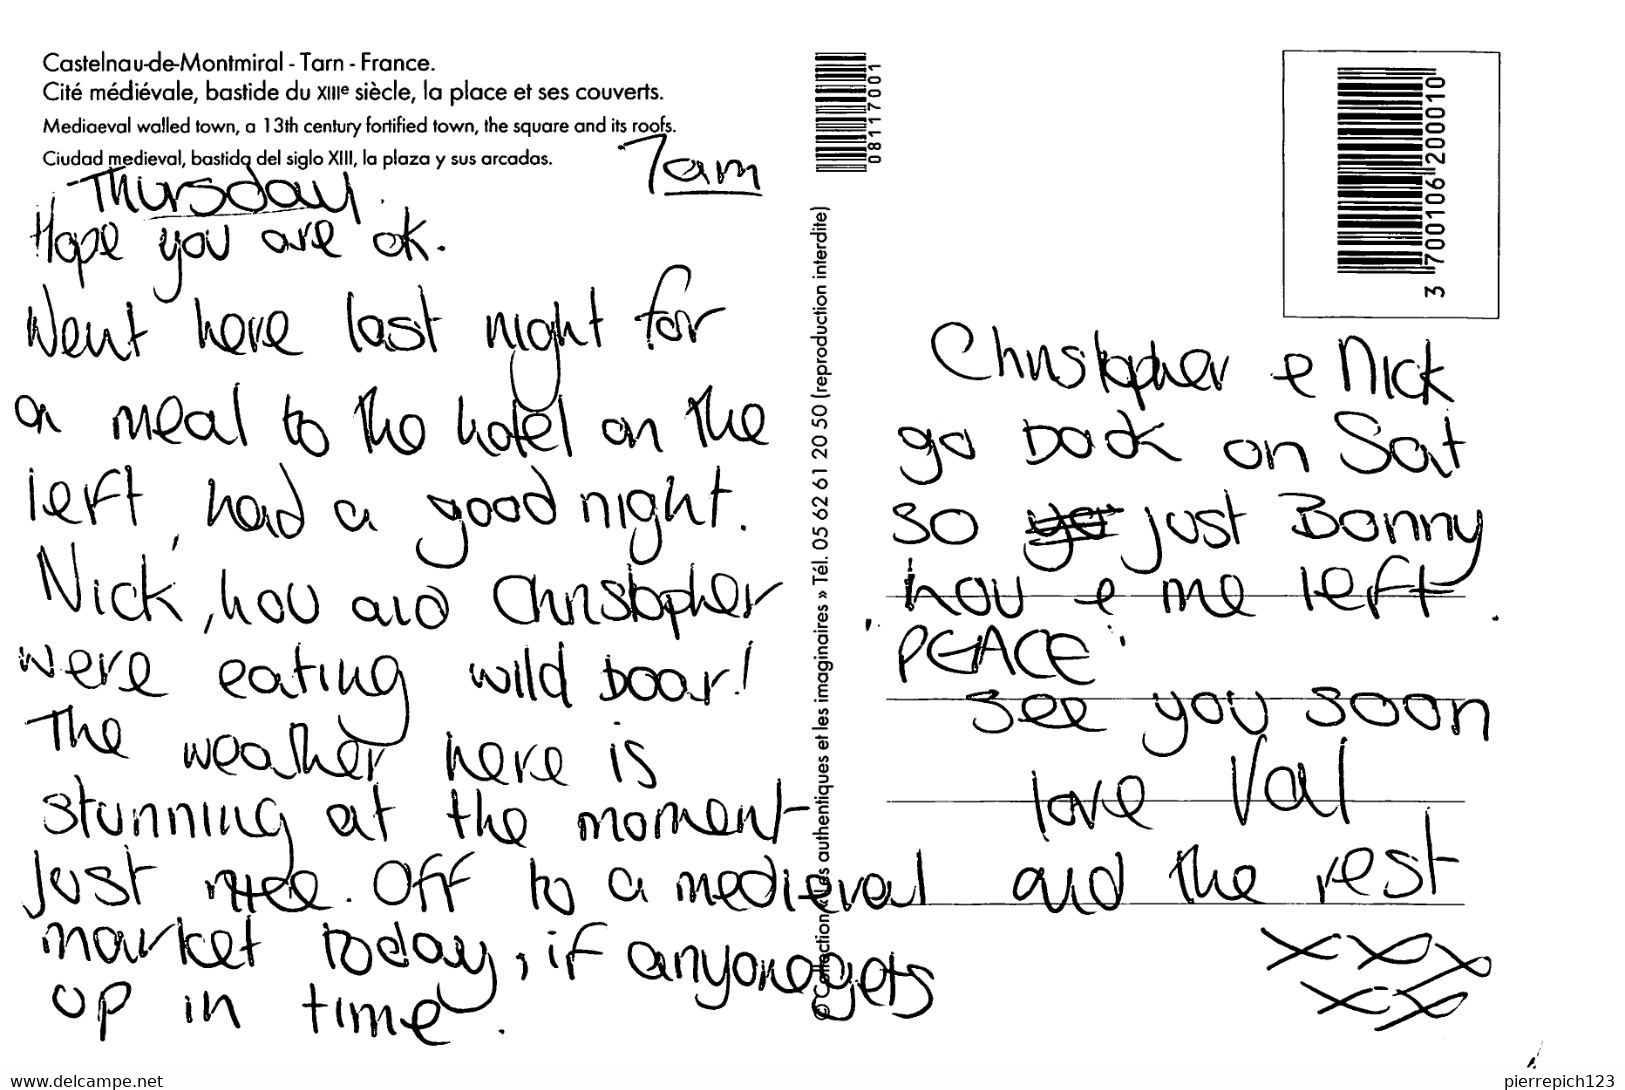 Castelnau-de-Montmiral - Tarn - France.
Cité médiévale, bastide du XIIIe siècle, la place et ses couverts.
Mediaeval walled town, a 13th century fortified town, the square and its roofs.
Ciudad medieval, bastida del siglo XIII, la plaza y sus arcadas.
Thursday. 7am
Hope you are ok.
Went here last night for
a meal to the hotel on the
left, had a good night.
Nick, Lou and Christopher
were eating wild boar!
The weather here is
stunning at the moment
just nice. Off to a medieval
market today, if anyone gets
up in time.
© Collection « Les authentiques et les imaginaires » Tél. 05 62 61 20 50 (reproduction interdite)
08117001
3 700106 200010
Christopher & Nick
go back on Sat
so just Bonny
Lou & me left.
'PEACE'
See you soon
love Val
and the rest
xxx
xx
www.delcampe.net
pierrepich123